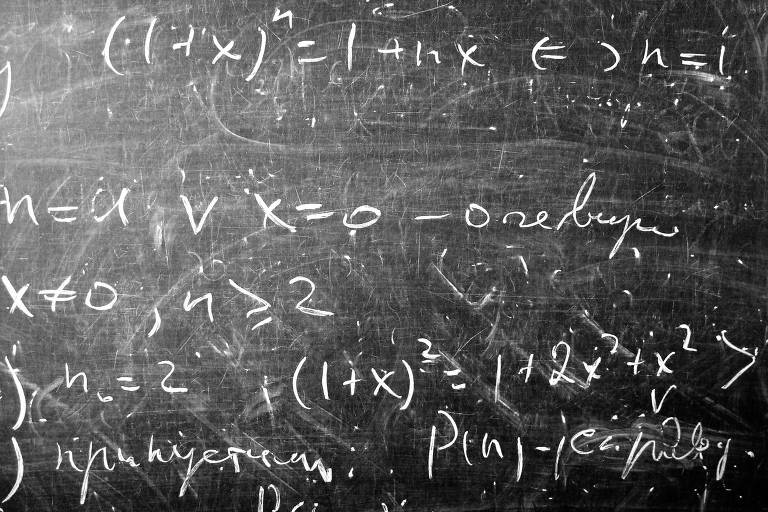 (1+x)ⁿ = 1 + n x ⇔ n = 1
n = 1 ∨ x = 0 — очевидно
x ≠ 0, n ≥ 2
), n₀ = 2 ; (1+x)² = 1 + 2x² + x² >
) припустимо: P(n) –